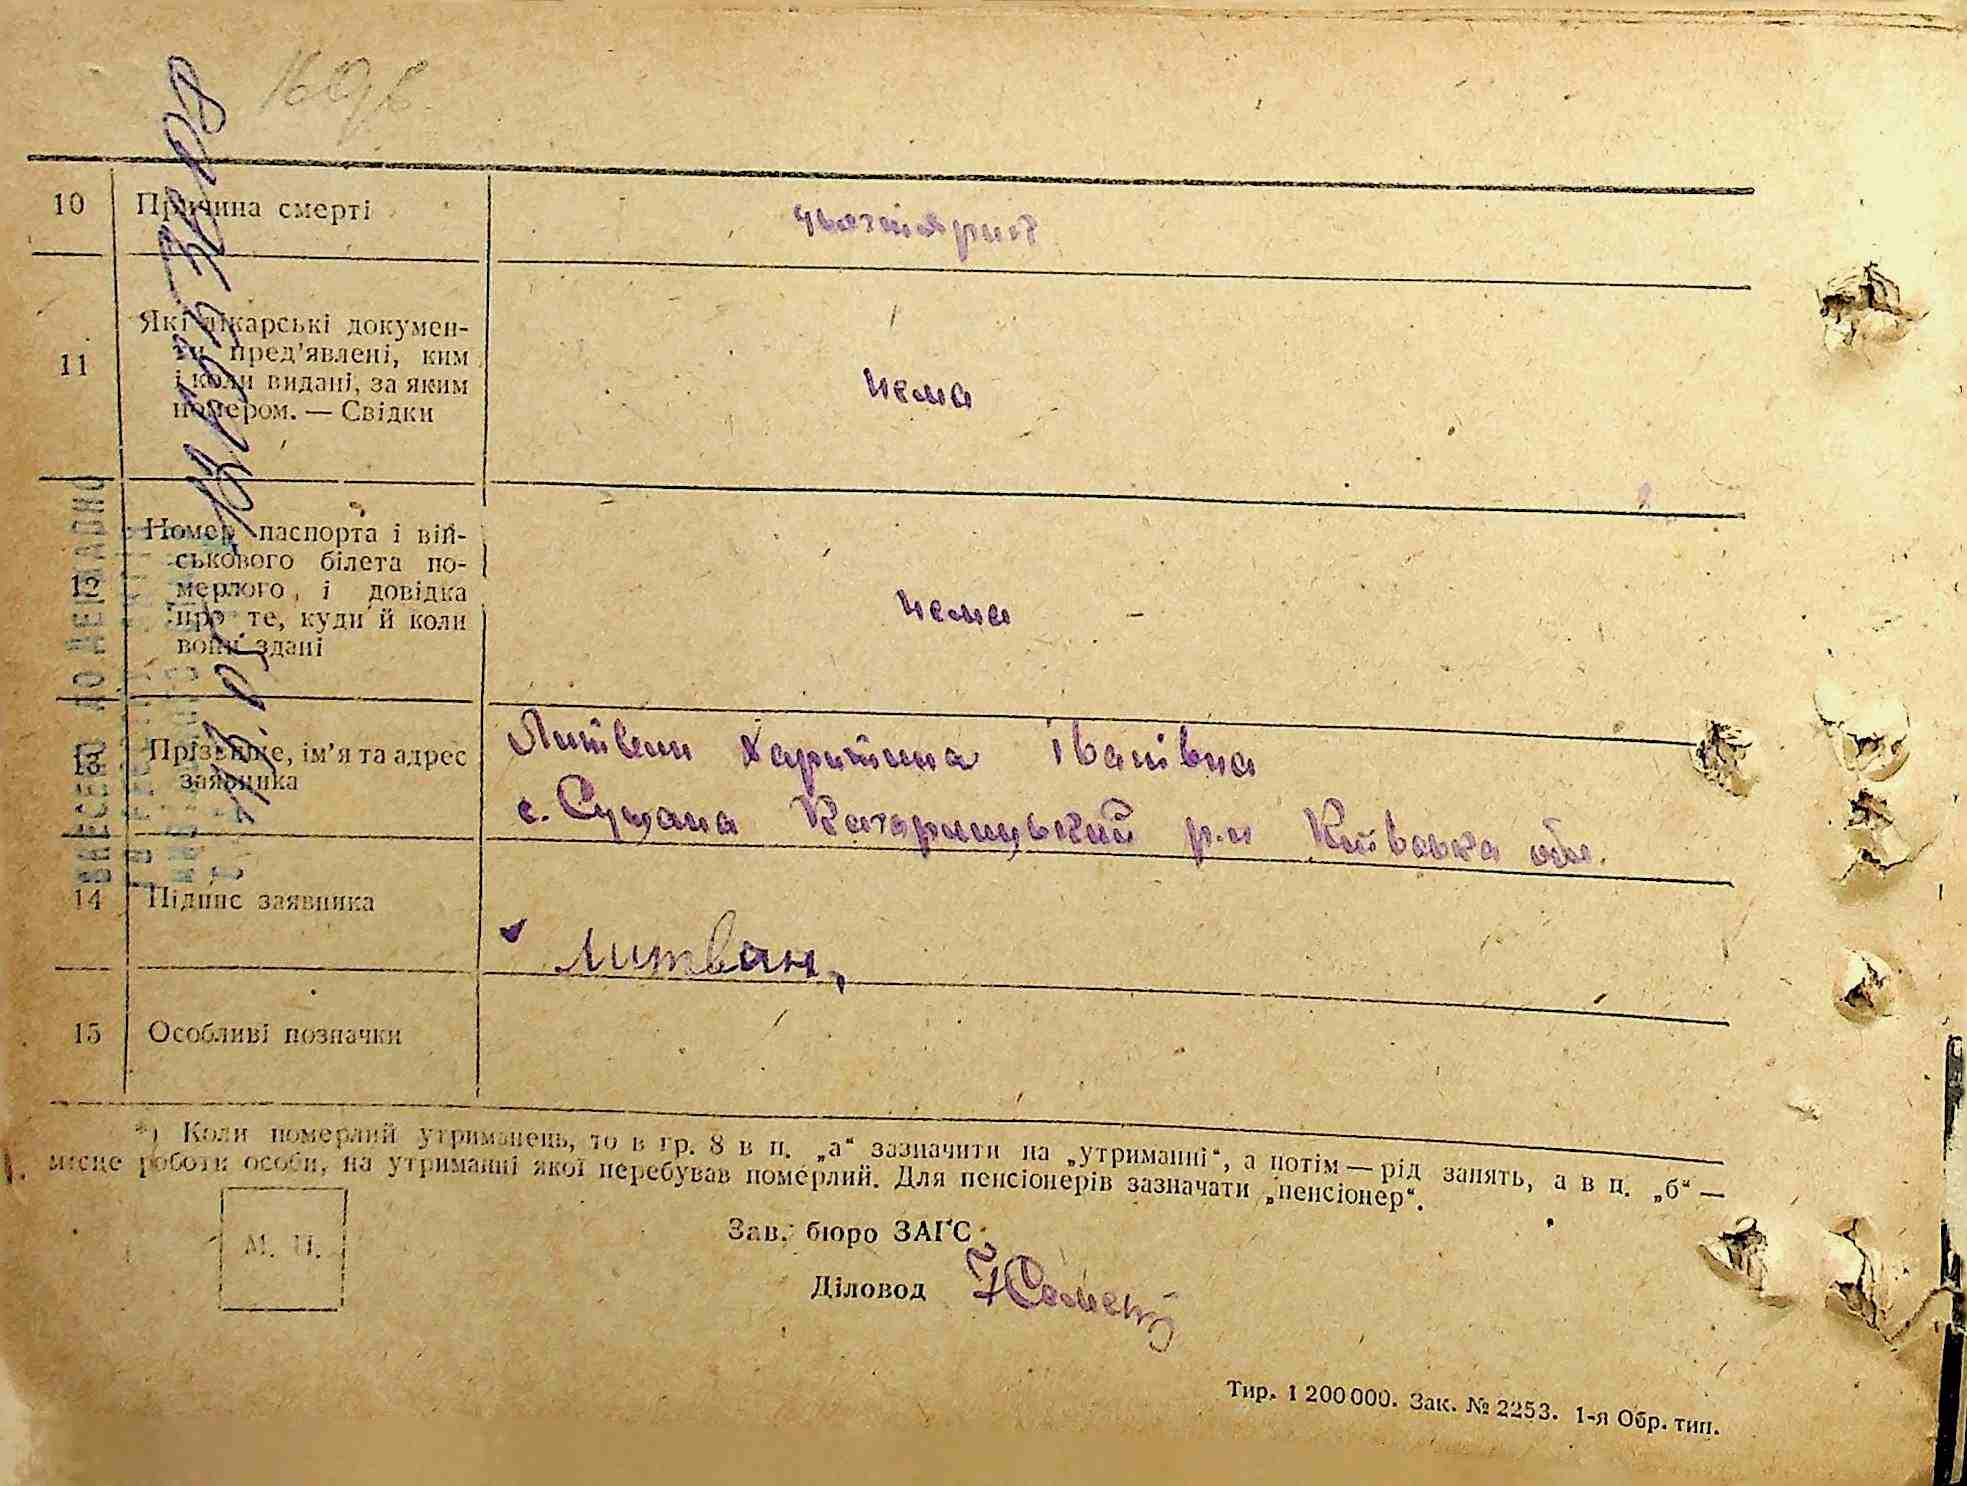 169 в.
10 Причина смерті
11 Які лікарські докумен-
ти пред'явлені, ким
і коли видані, за яким
номером. — Свідки
нема
12 Номер паспорта і вій-
ськового білета по-
мерлого, і довідка
про те, куди й коли
вони здані
нема
13 Прізвище, ім'я та адрес
заявника
Литвин Харитина Іванівна
с. Сущана Кагарлицький р.н Київська обл.
14 Підпис заявника
Литвин
15 Особливі позначки
*) Коли померлий утриманець, то в гр. 8 в п. „а“ зазначити на „утриманні“, а потім — рід занять, а в п. „б“ —
місце роботи особи, на утриманні якої перебував померлий. Для пенсіонерів зазначати „пенсіонер“.
М. П.
Зав. бюро ЗАГС
Діловод
Тир. 1 200 000. Зак. № 2253. 1-я Обр. тип.